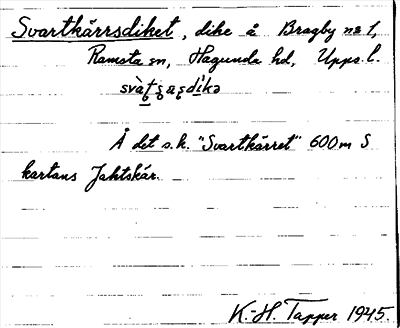 Svartkärrsdiket, dike å Bragby nr 1,
Ramsta sn, Hagunda hd, Upps. l.
Å det s.k. "Svartkärret" 600 m S
kartans Jaktskär.
K.-H. Tapper 1945.